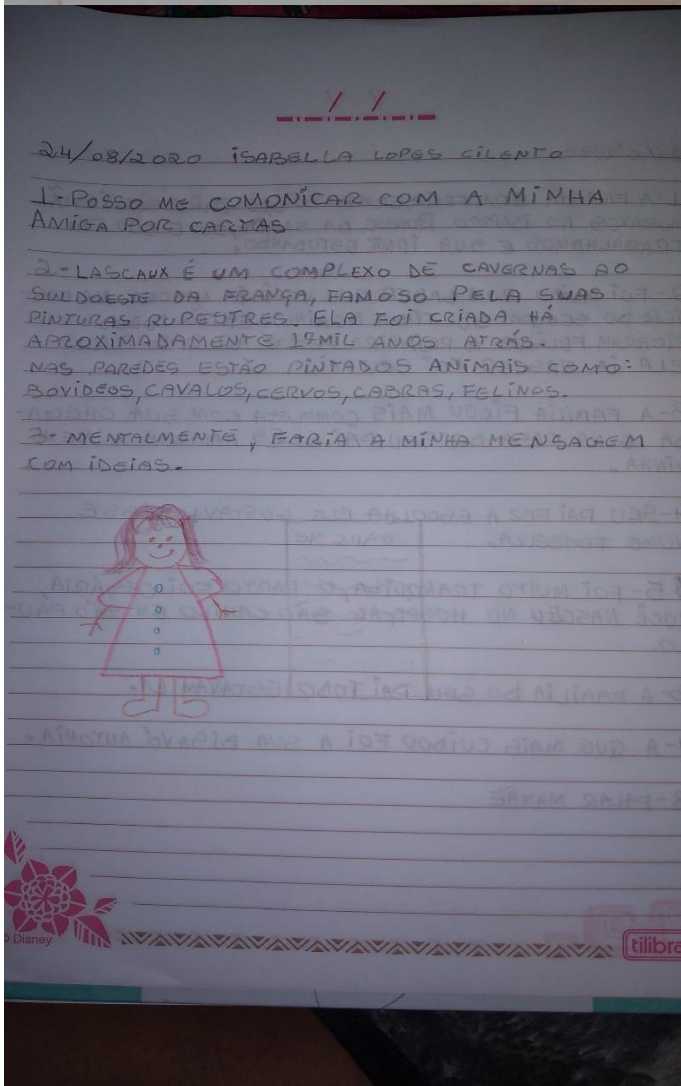 24/08/2020 ISABELLA LOPES CILENTO
1-POSSO ME COMONICAR COM A MINHA
AMIGA POR CARTAS
2-LASCAUX É UM COMPLEXO DE CAVERNAS AO
SULDOESTE DA FRANÇA, FAMOSO PELA SUAS
PINTURAS RUPESTRES. ELA FOI CRIADA HÁ
APROXIMADAMENTE 17MIL ANOS ATRÁS.
NAS PAREDES ESTÃO PINTADOS ANIMAIS COMO:
BOVÍDEOS, CAVALOS, CERVOS, CABRAS, FELINOS.
3-MENTALMENTE, FARIA A MINHA MENSAGEM
COM IDEIAS.
Disney
tilibra